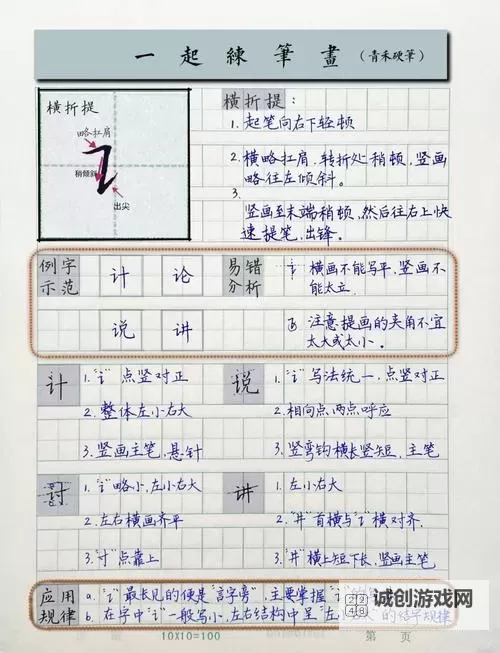 一起練筆畫（青禾硬筆）
横折提
略扛肩
稍倾斜
出尖
横折提：
1. 起笔向右下轻顿
2. 横略扛肩、转折处稍顿，竖画
略往左倾斜。
3.
竖画至末端稍顿，然后往右上快
速提笔，出锋。
例字
示范
计 论
说 讲
易错
分析
横画不能写平，竖画不
能太立
注意提画的夹角不宜
太大或太小。
计
1. "讠"点竖对正
2. 整体左小右大
3. 竖画主笔，悬针
说
1. "讠"写法统一，点画对正
2. 相向点，两点呼应
3. 竖弯钩横长竖短，主笔
讨
1. "讠"略小，左小右大
2. 左右横画齐平
3. "寸"点靠上
讲
1. 左小右大
2. "井"首横与"讠"横对齐.
3. "井"横上短下长，竖画主笔
应用
规律
a. "讠"最长见的便是"言字旁"，主要掌握"讠"
b. 在字中"讠"一般写小，左右结构中呈"左小右大"的结字规律
诚创游戏网
10X10=100
第 页